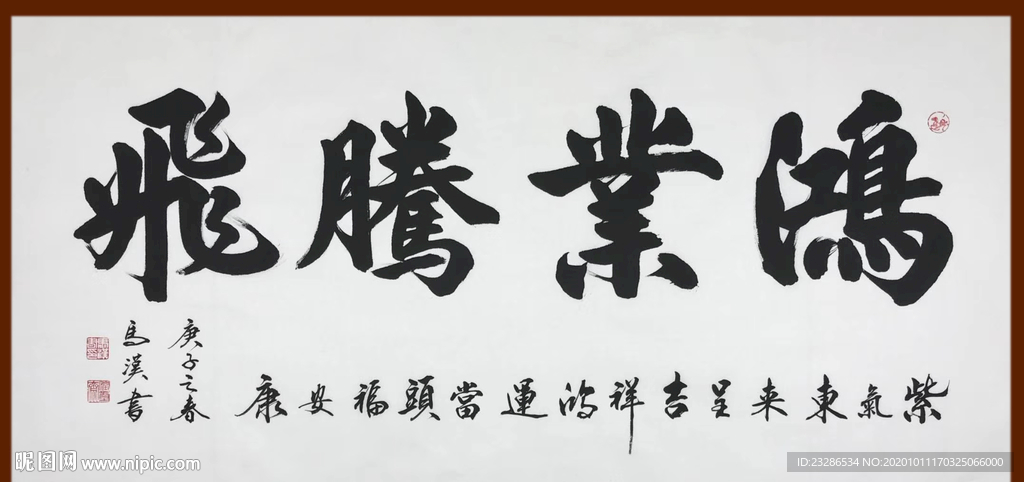 鴻業騰飛
紫氣東来呈吉祥鴻運當頭福安康
庚子之春
馬漢書
昵图网 www.nipic.com
ID:23286534 NO:20201011170325066000